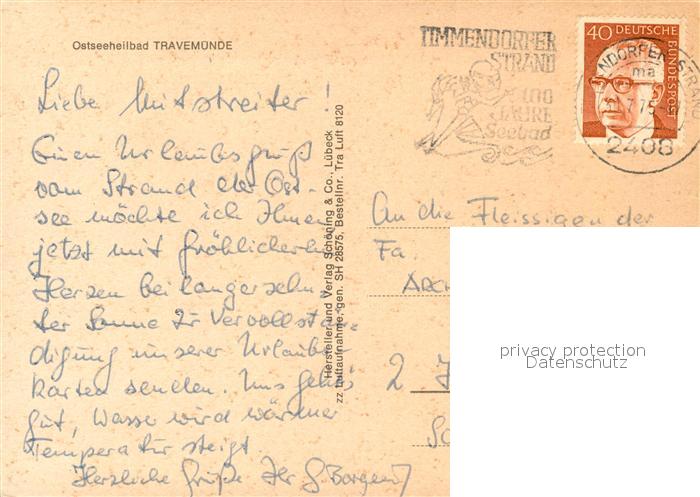 Ostseeheilbad TRAVEMÜNDE
TIMMENDORFER
STRAND
100
JAHRE
Seebad
40 DEUTSCHE
BUNDESPOST
2408
Liebe Mitstreiter!
Einen Urlaubsgruß
vom Strand der Ost-
see möchte ich Ihnen
jetzt mit fröhlicherem
Herzen bei langersehn-
ter Sonne zur Vervollstän-
digung unserer Urlaubs-
karten senden. Uns geht's
gut, Wasser wird wärmer
Temperatur steigt.
Herzliche Grüße Ihr G.
Hersteller und Verlag Schöning & Co., Lübeck
zz Luftaufnahme, gen. SH 28575, Bestellnr. Tra Luft 8120
An die Fleissigen der
Fa.
2
privacy protection
Datenschutz